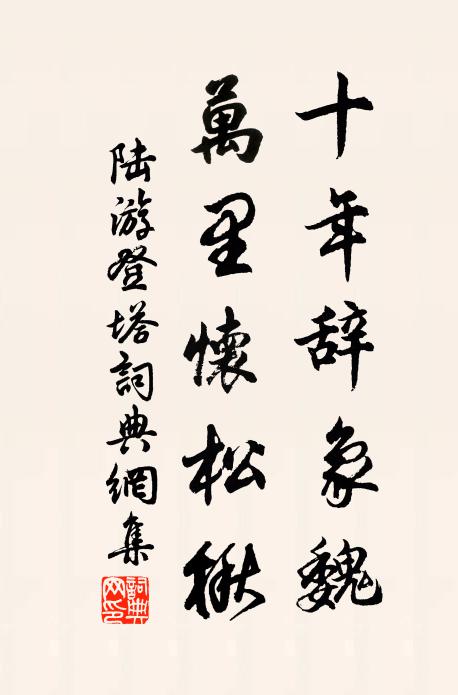 十年辞象魏
萬里懷松楸
陆游登塔詞典網集
詞典网印